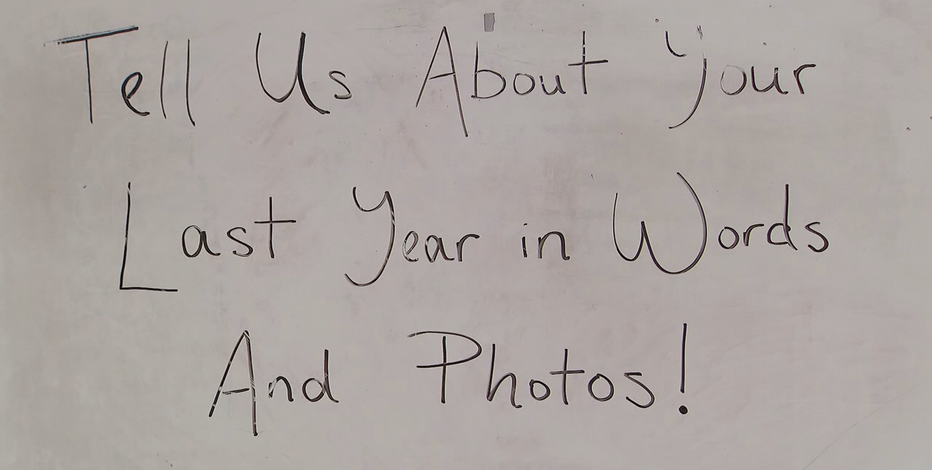 Tell Us About Your
Last Year in Words
And Photos!